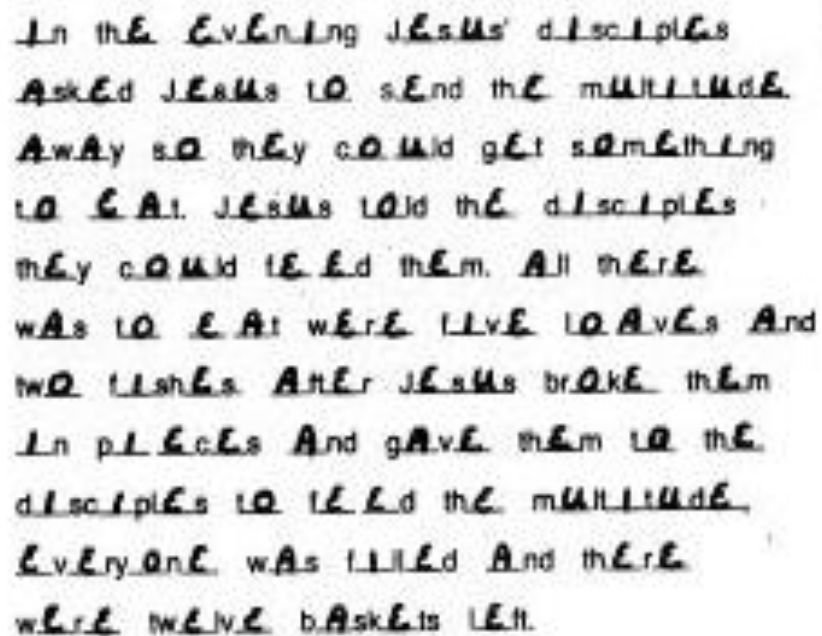 In thE EvEnIng JEsUs' dIscIplEs
AskEd JEsUs tO sEnd thE mUltItUdE
AwAy sO thEy cOUld gEt sOmEthIng
tO EAt. JEsUs tOld thE dIscIplEs
thEy cOUld fEEd thEm. All thErE
wAs tO EAt wErE fIvE lOAvEs And
twO fIshEs. AftEr JEsUs brOkE thEm
In pIEcEs And gAvE thEm tO thE
dIscIplEs tO fEEd thE mUltItUdE,
EvEryOnE wAs fIllEd And thErE
wErE twElvE bAskEts lEft.